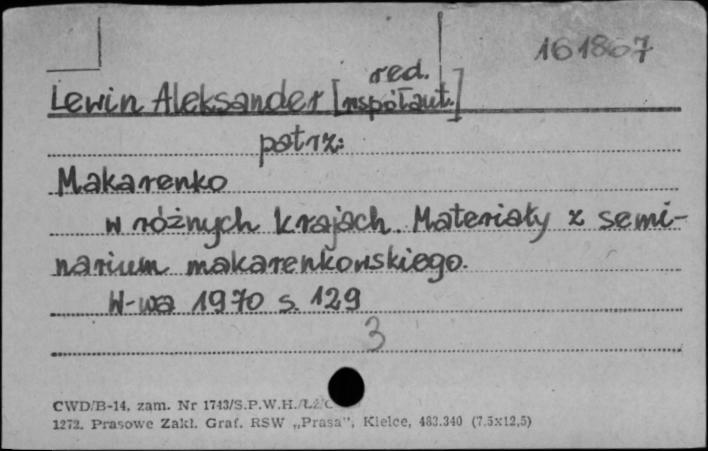 161867
red.
Lewin Aleksander [współaut.]
patrz:
Makarenko
w różnych krajach. Materiały z semi-
narium makarenkowskiego.
W-wa 1970 s. 129
3
CWD/B-14, zam. Nr 1743/S.P.W.H./Łż/C
1272. Prasowe Zakł. Graf. RSW „Prasa”, Kielce, 483.340 (7,5x12,5)